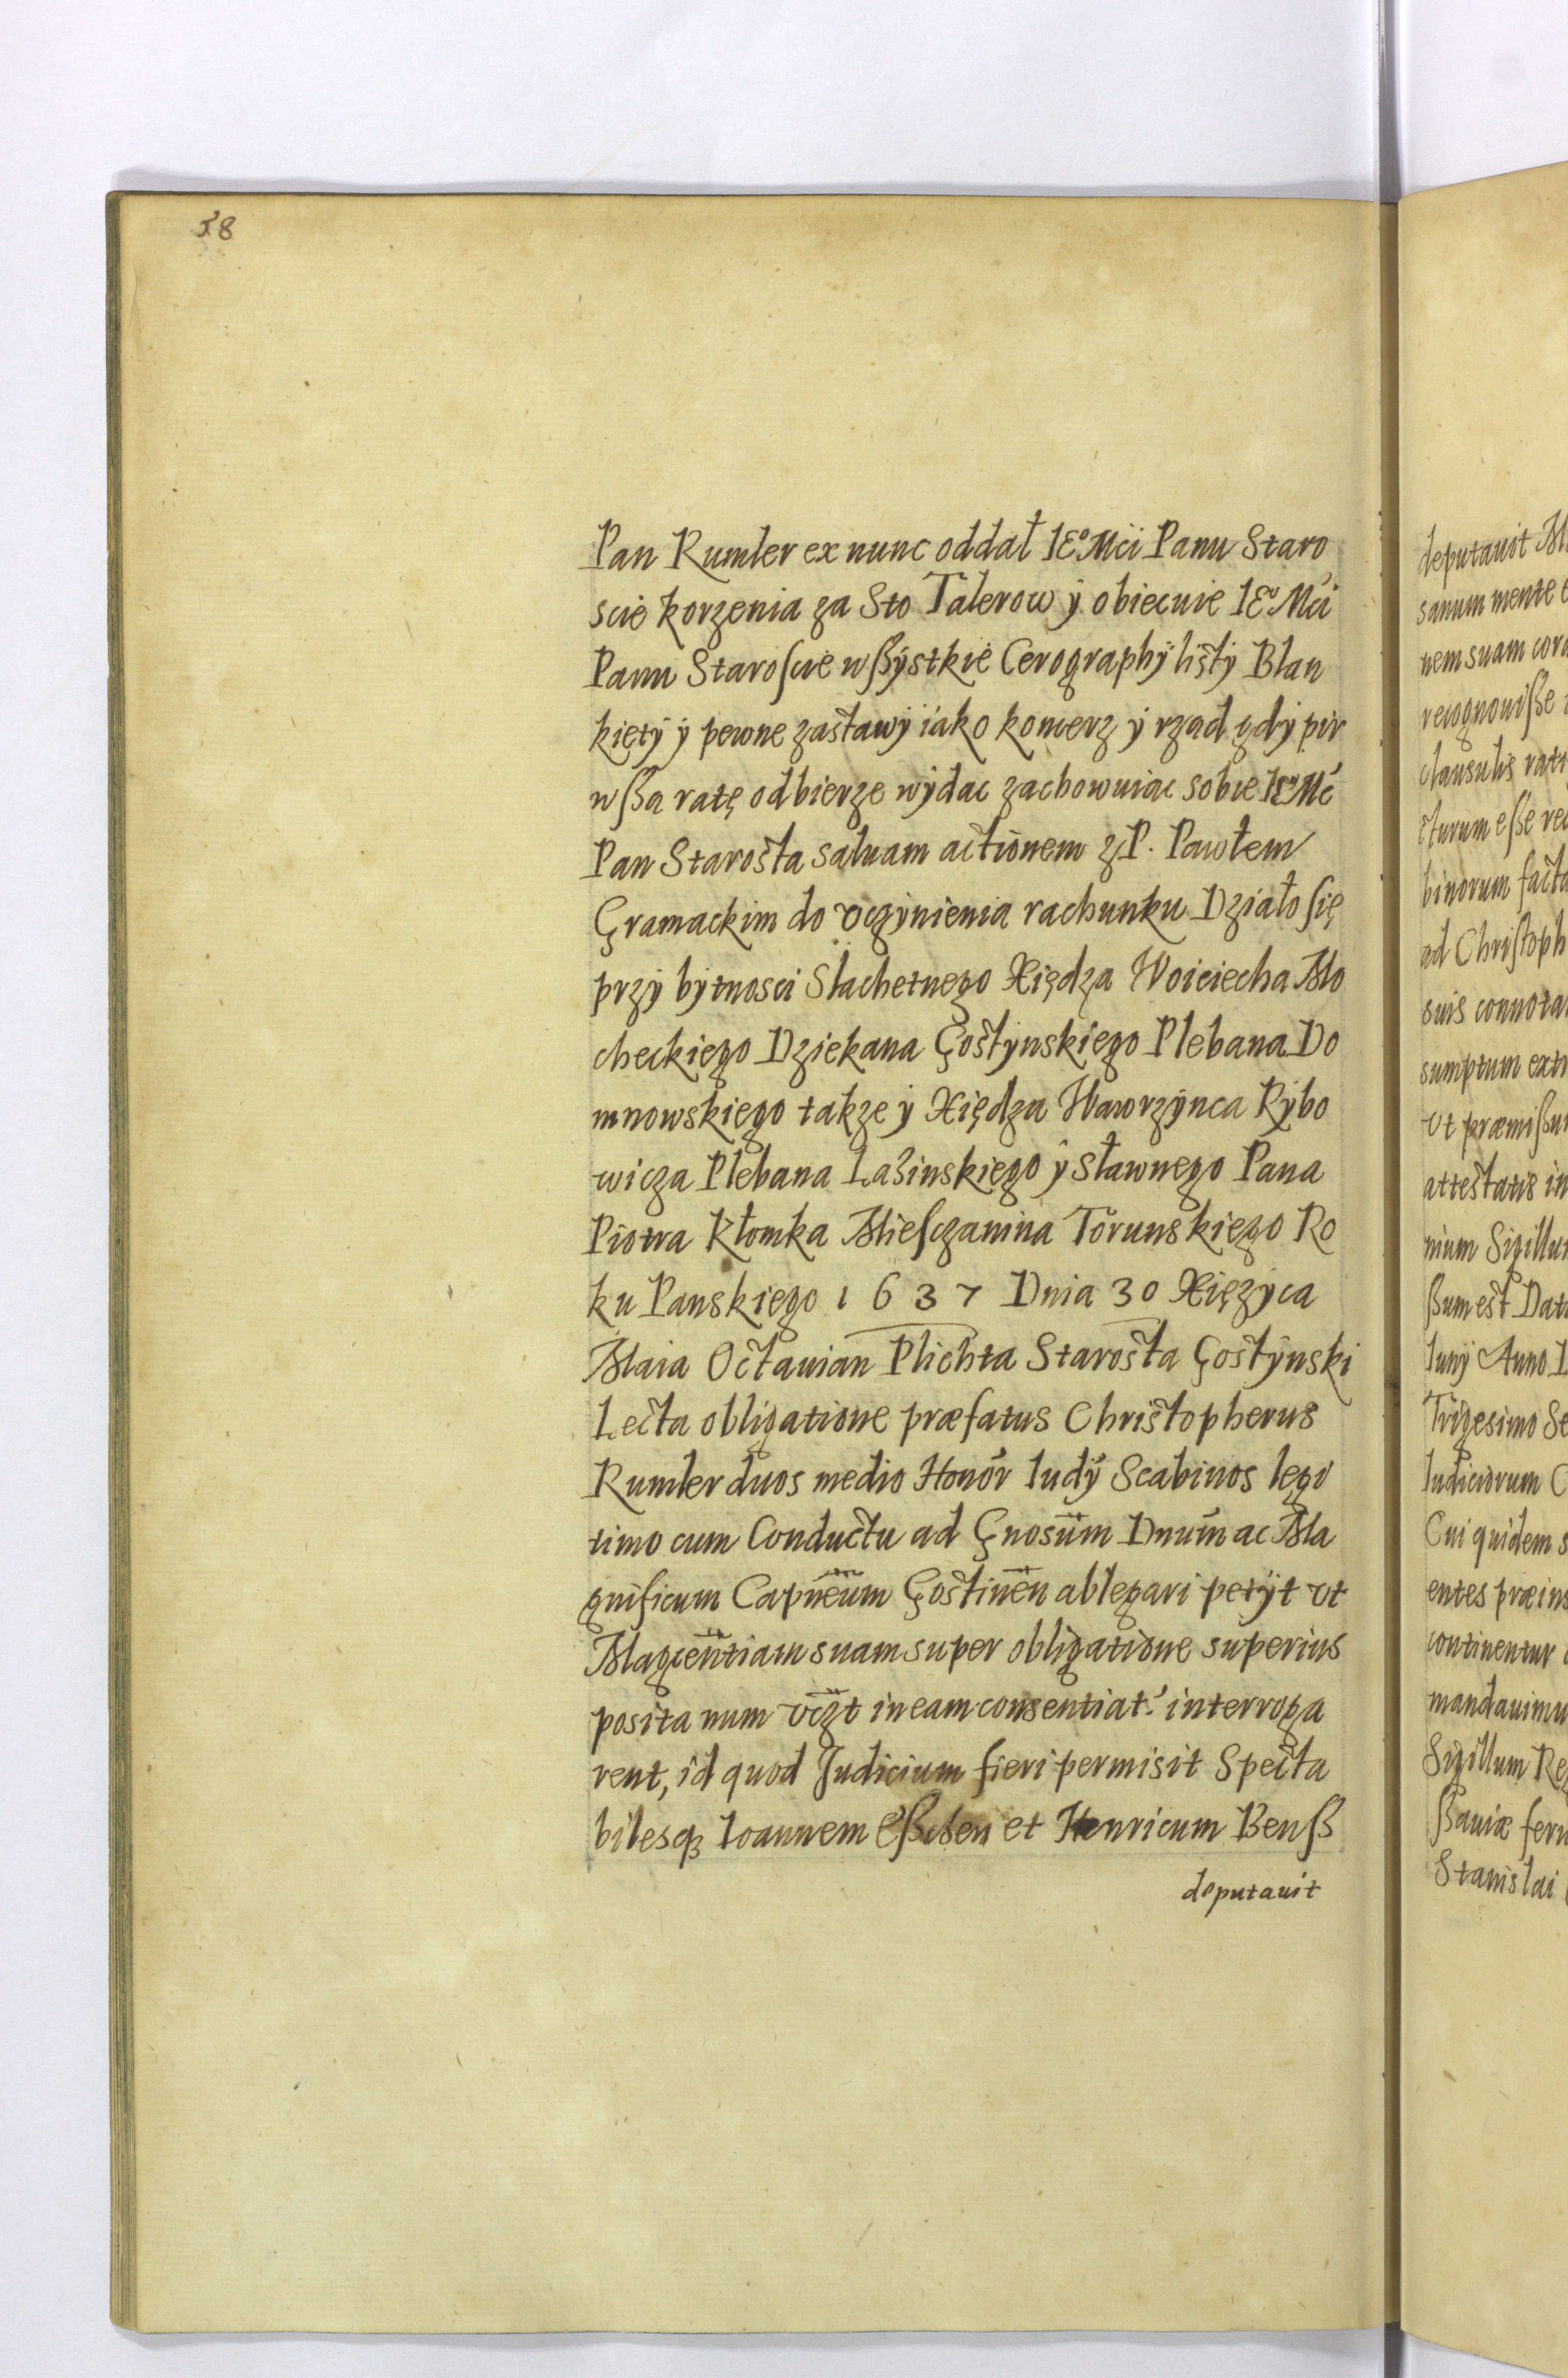 38
Pan Rumler ex nunc oddał JEo Mci Panu Staro
scie korzenia za Sto Talerow ÿ obiecuie JEo Mci
Panu Staroſcie wſßÿstkie Cerographÿ listÿ Blan
kietÿ ÿ pewne zastawÿ iako koncerz ÿ rzad gdÿ pir
wſßa ratę odbierze wÿdac zachowuiac sobie JEo Mć
Pan Starosta saluam actionem z P. Pawłem
Gramackim do vczÿnienia rachunku Działo ſię
przÿ bÿtnosci Slachetnego Xiędza Woiciecha Mo
checkiego Dziekana Gostÿnskiego Plebana Do
mnowskiego takze ÿ Xiędza Wawrzÿnca Rÿbo
wicza Plebana Lazinskiego ÿ sławnego Pana
Piotra Kłomka Mieſczanina Torunskiego Ro
ku Panskiego 1637 Dnia 30 Xięzÿca
Maia Octauian Plichta Starosta Gostÿnski
Lecta obligatione præfatus Christopherus
Rumler duos medio Honor Iudÿ Scabinos legi
timo cum Conductu ad Gnosum Dnum ac Ma
gnificum Capneum Gostinen ablegari petÿt vt
Magcentiam suam super obligatione superius
posita num vczt in eam consentiat interroga
rent, id quod Judicium fieri permisit Specta
bilesq Ioannem Eſßken et Henricum Benſß
deputauit
deputauit M
sanum mente e
nem suam cora
recognouiſße
clausulis rati
cturum eſße rec
binorum facta
ad Chriſtoph
suis connota
sumptum extr
vt præmiſßu
attestatis in
nium Sigillu
ſßum est Dat
Iunÿ Anno D
Trigesimo Se
Iudiciorum C
Cui quidem s
entes præins
continentur
mandauimu
Sigillum Reg
ſßauiæ feru
Stanislai